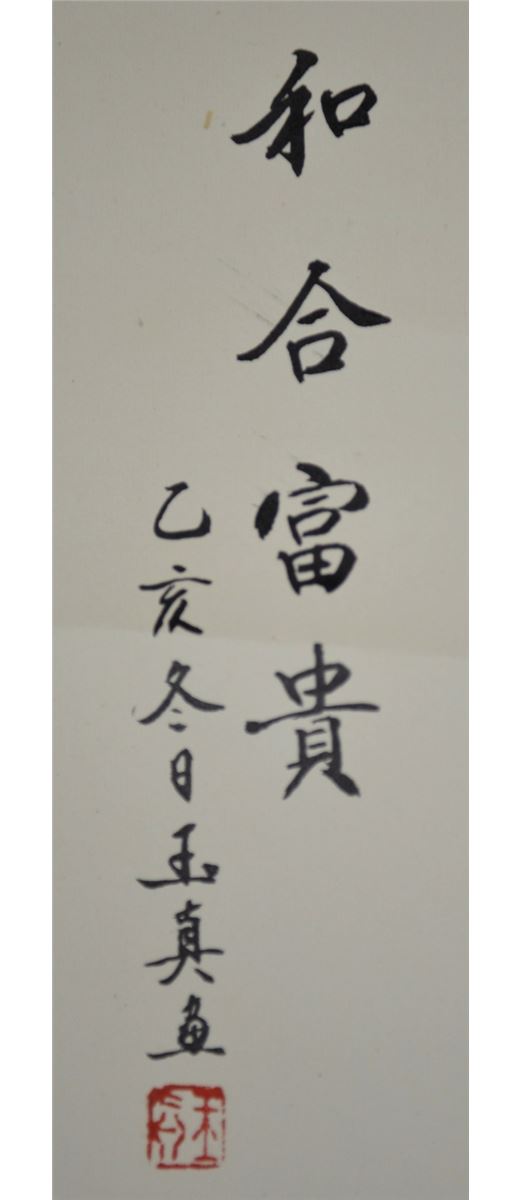 和合富貴
乙亥冬日玉真画